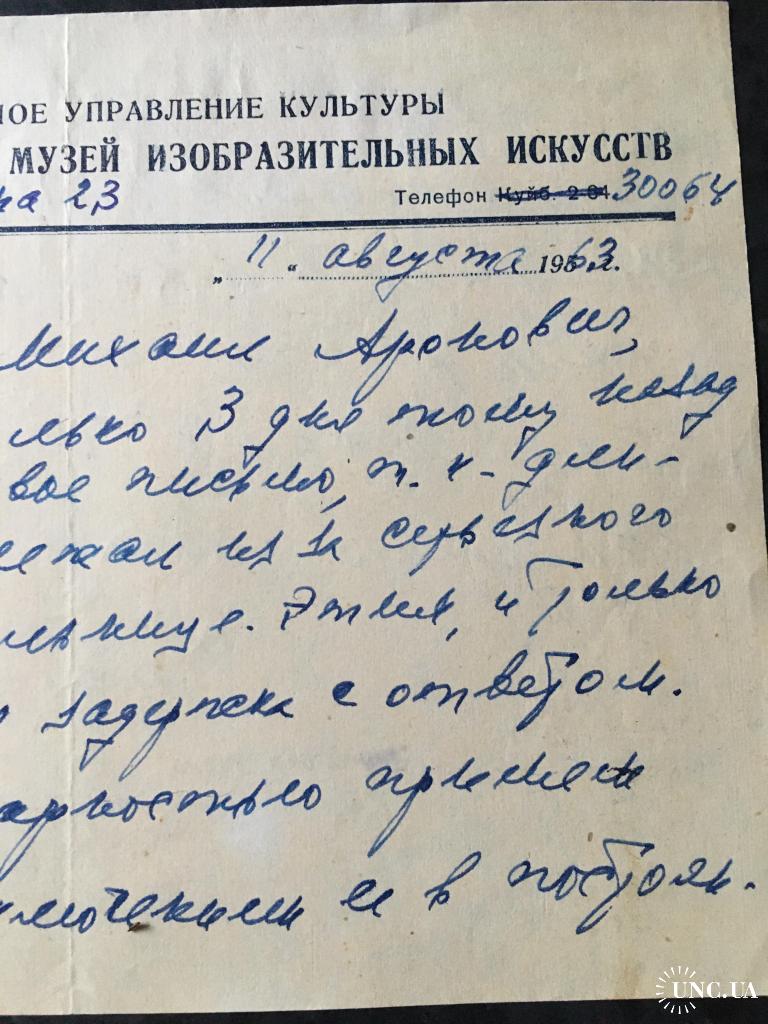 НОЕ УПРАВЛЕНИЕ КУЛЬТУРЫ
МУЗЕЙ ИЗОБРАЗИТЕЛЬНЫХ ИСКУССТВ
ка 23 Телефон Куйб. 2-64 30064
„ 11 “ августа 1963 г.
Михаил Аронович,
лько 3 дня тому назад
вое письмо, т. к. дли-
ежал из за серьезного
льнице. Этим, и только
задержка с ответом.
арностью примем
ключением ея в постоян-
UNC.UA